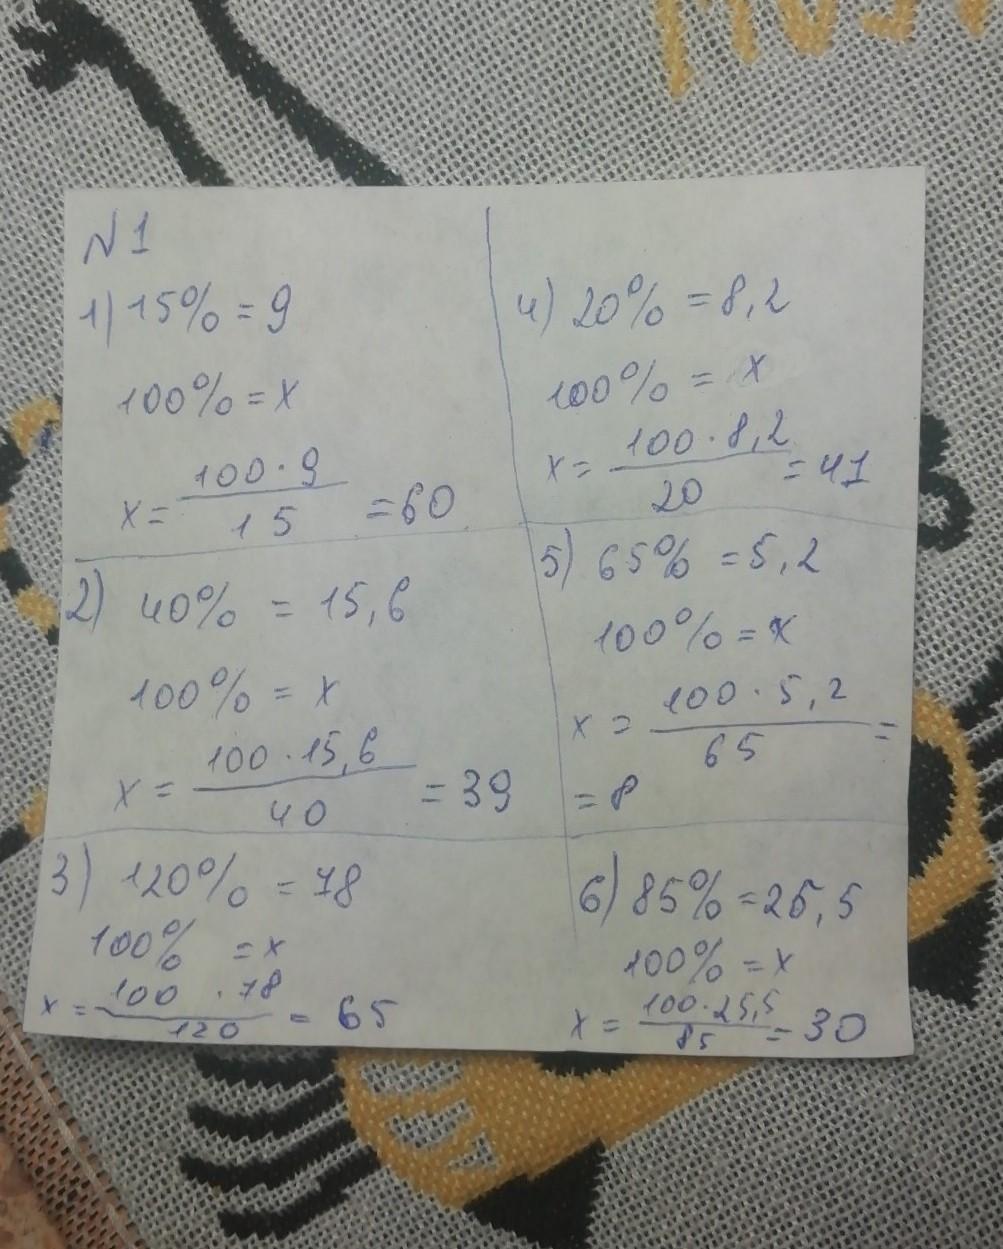 №1
1) 15% = 9
100% = x
x = 100 · 9 / 15 = 60
2) 40% = 15,6
100% = x
x = 100 · 15,6 / 40 = 39
3) 120% = 78
100% = x
x = 100 · 78 / 120 = 65
4) 20% = 8,2
100% = x
x = 100 · 8,2 / 20 = 41
5) 65% = 5,2
100% = x
x = 100 · 5,2 / 65 =
= 8
6) 85% = 25,5
100% = x
x = 100 · 25,5 / 85 = 30